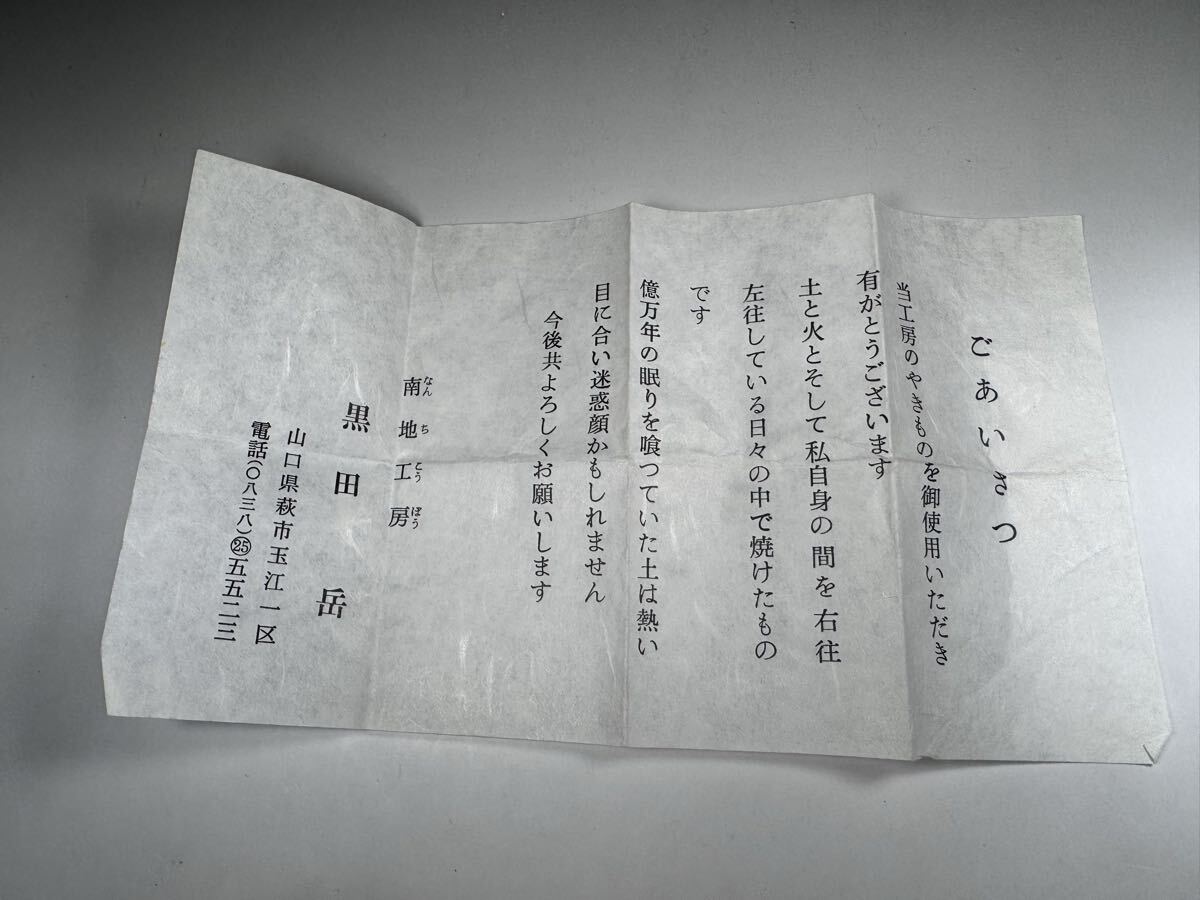 ごあいさつ
当工房のやきものを御使用いただき
有がとうございます
土と火とそして私自身の間を右往
左往している日々の中で焼けたもの
です
億万年の眠りを喰つていた土は熱い
目に合い迷惑顔かもしれません
今後共よろしくお願いします
南地工房
なんちとうぼう
黒田岳
山口県萩市玉江一区
電話(〇八三八)㉕五五二三